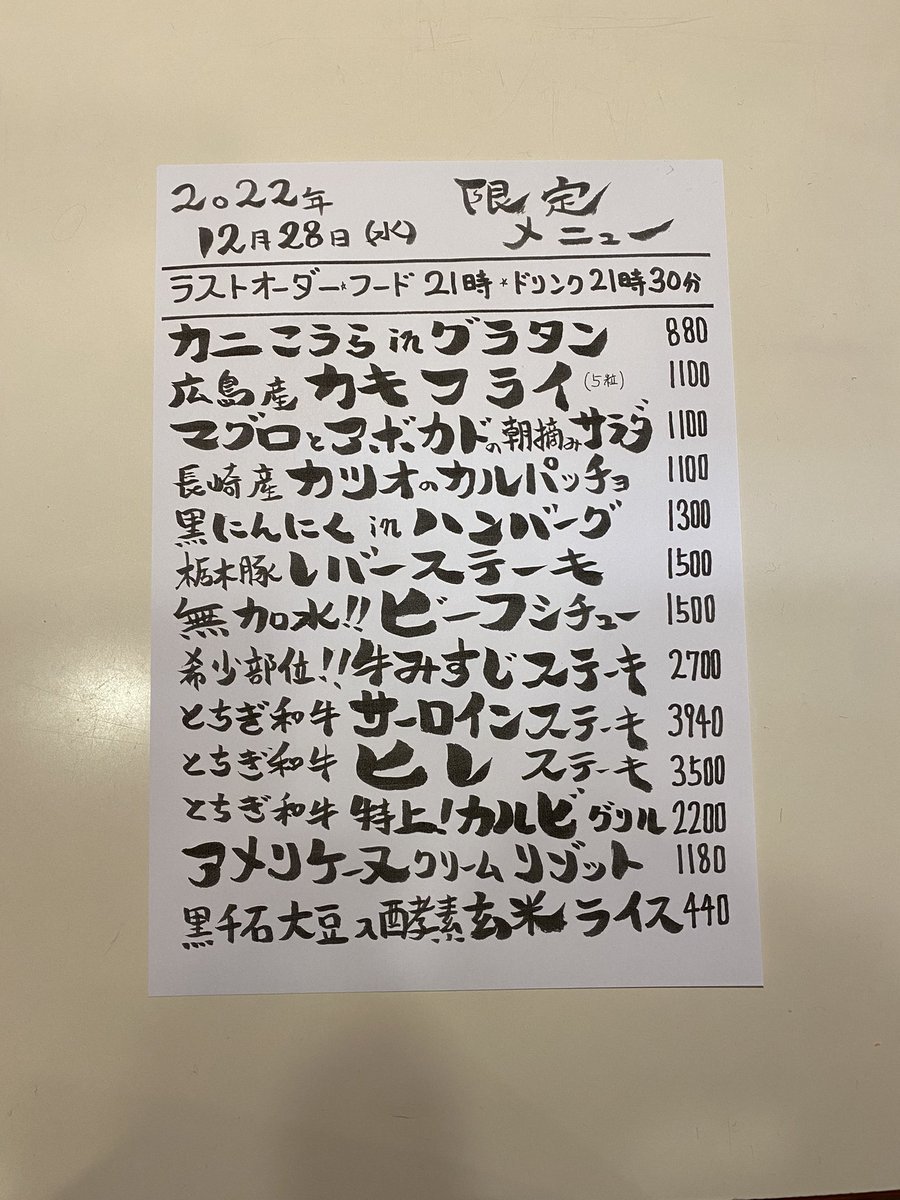 2022年
12月28日(水)
限定
メニュー
ラストオーダー*フード 21時*ドリンク21時30分
カニこうら in グラタン 880
広島産 カキフライ(5粒) 1100
マグロとアボカドの朝摘みサラダ 1100
長崎産 カツオのカルパッチョ 1100
黒にんにく in ハンバーグ 1300
栃木豚 レバーステーキ 1500
無加水!! ビーフシチュー 1500
希少部位!! 牛みすじステーキ 2700
とちぎ和牛 サーロインステーキ 3940
とちぎ和牛 ヒレ ステーキ 3500
とちぎ和牛 特上!カルビグリル 2200
アメリケーヌクリームリゾット 1180
黒千石大豆入酵素玄米ライス 440